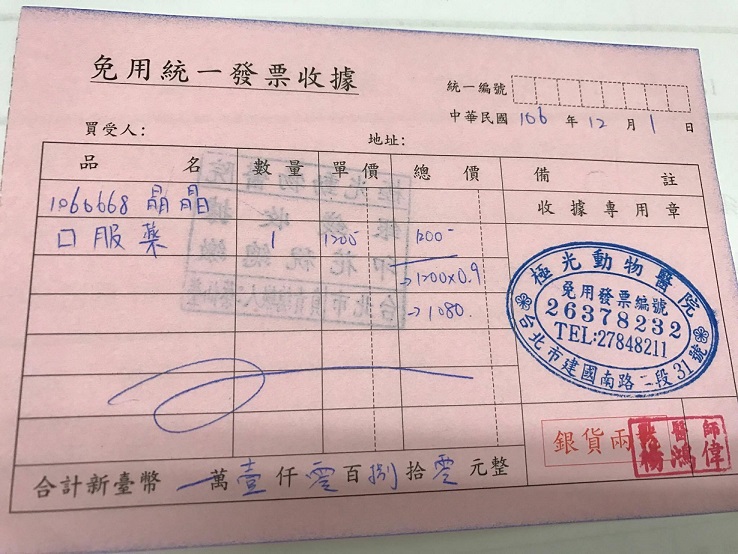 免用統一發票收據
統一編號
中華民國 106 年 12 月 1 日
買受人：
地址：
品名 數量 單價 總價 備註
1066668 晶晶
收據專用章
口服藥 1 1200 1200-
→1200x0.9
→1080.
極光動物醫院
免用發票編號
26378232
TEL:27848211
台北市建國南路二段31號
銀貨兩
醫師
楊鴻偉
合計新臺幣 萬壹仟零百捌拾零元整